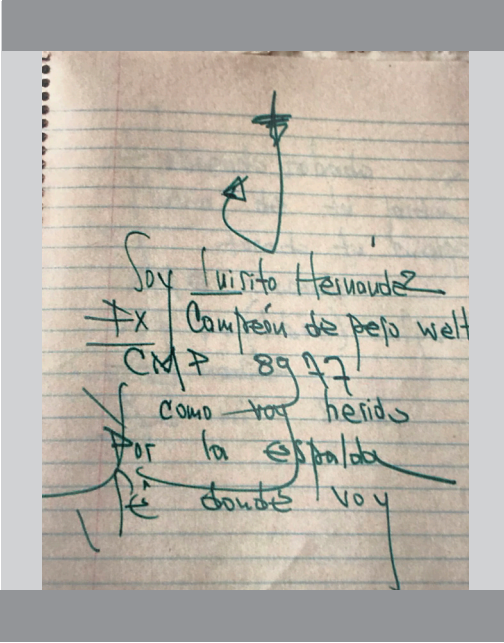 Soy Luisito Hernández
Ex Campeón de peso welt
CMP 8977
como voy herido
Por la espalda
sé donde voy